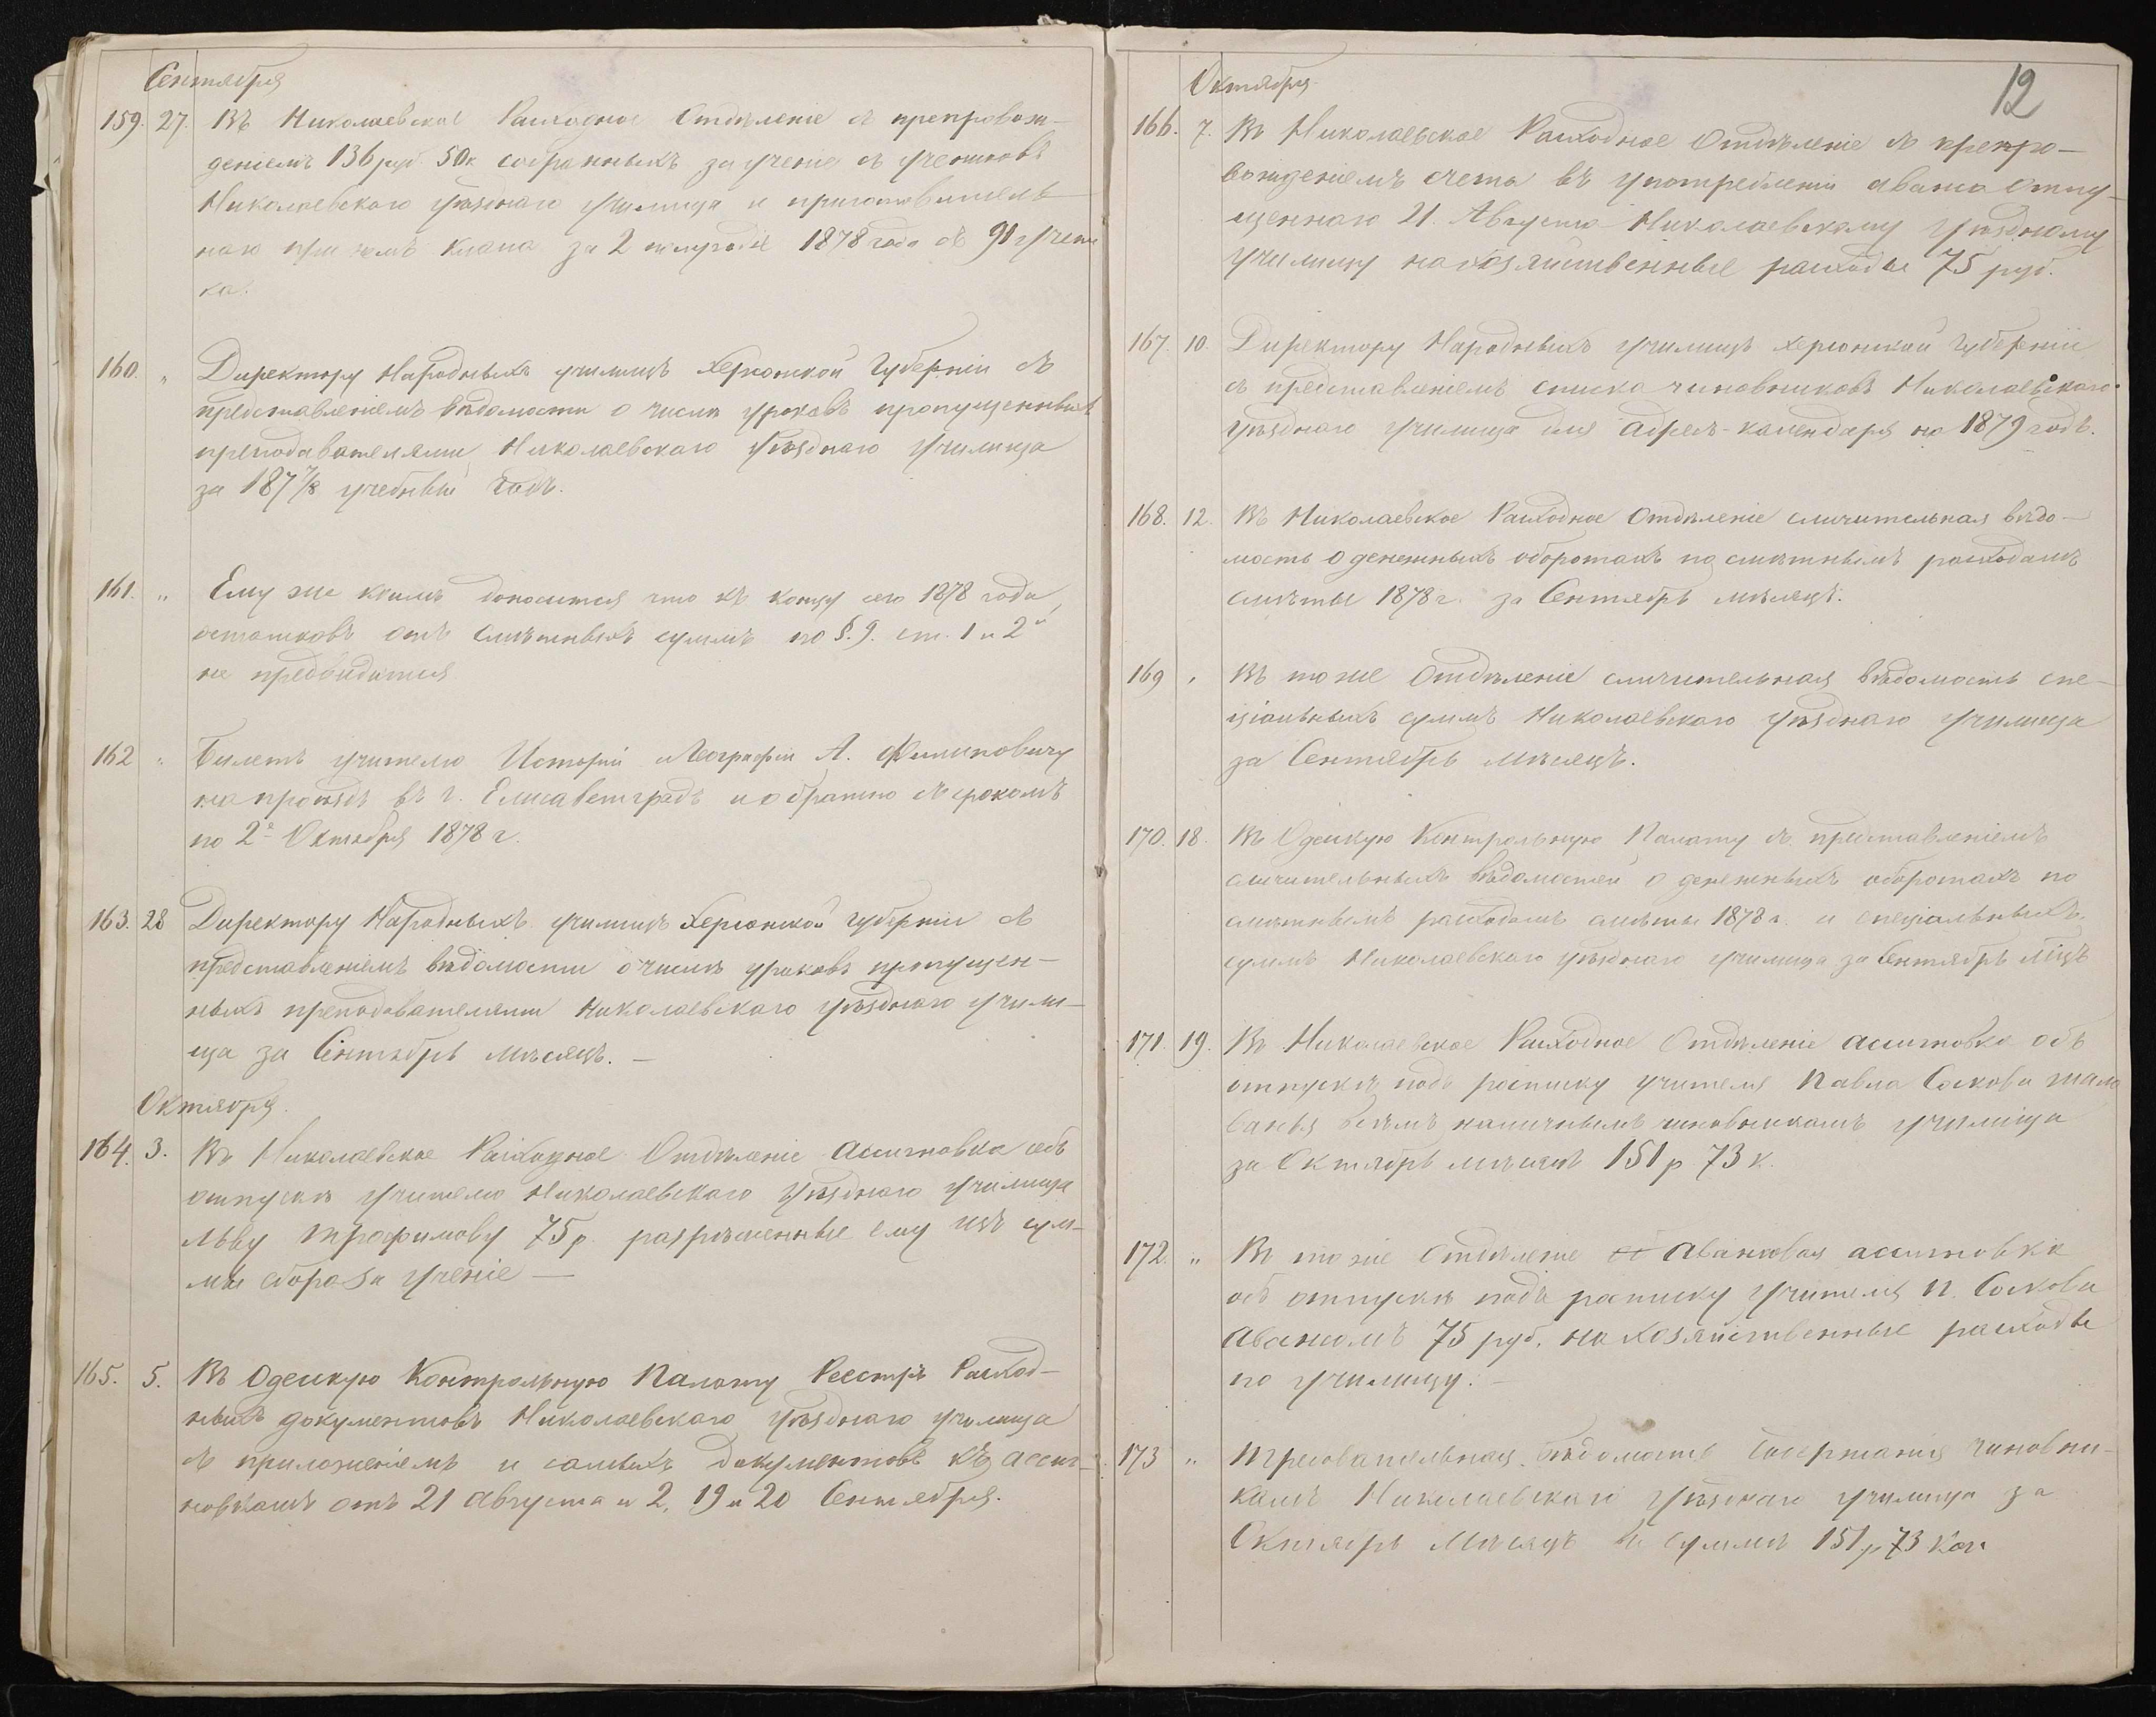 Сентября
159. 27. Въ Николаевское Расходное Отдѣленіе съ препровож-
деніемъ 136 руб. 50 к собранныхъ за ученіе съ учениковъ
Николаевскаго уѣзднаго училища и приготовитель-
наго при немъ класса за 2 полугодіе 1878 года съ 91 учени
ка.
160. „ Директору Народныхъ училищъ Херсонской Губерніи съ
представленіемъ вѣдомости о числѣ уроковъ пропущенныхъ
преподавателями Николаевскаго Уѣзднаго Училища
за 187 7/8 учебный годъ.
161. „ Ему же коимъ доносится что къ концу сего 1878 года,
остатковъ отъ смѣтныхъ суммъ по §. 9. ст. 1 и 2й
не предвидится
162 „ Билетъ учителю Исторіи и Географіи А. Филиповичу
на проѣздъ въ г. Елисаветградъ и обратно съ срокомъ
по 2е Октября 1878 г.
163. 28 Директору Народныхъ училищъ Херсонской губерніи съ
представленіемъ вѣдомости о числѣ уроковъ пропущен-
ныхъ преподавателями Николаевскаго уѣзднаго учили-
ща за Сентябрь мѣсяцъ. —
Октября.
164. 3. Въ Николаевское Расходное Отдѣленіе ассигновка объ
отпускѣ учителю Николаевскаго Уѣзднаго училища
Льву Трофимову 75 р. разрѣшенные ему изъ сум-
мы сбора за ученіе —
165. 5. Въ Одесскую Контрольную Палату Реестръ Расход-
ныхъ документовъ Николаевскаго уѣзднаго училища
съ приложеніемъ и самыхъ документовъ къ ассиг-
новкамъ отъ 21 августа и 2, 19 и 20 Сентября.
12
Октября
166. 7. Въ Николаевское Расходное Отдѣленіе съ препро-
вожденіемъ счета въ употребленіи аванса отпу-
щеннаго 21. Августа Николаевскому Уѣздному
училищу на хозяйственные расходы 75 руб.
167. 10. Директору Народныхъ училищъ Херсонской Губерніи
съ представленіемъ списка чиновниковъ Николаевскаго
уѣзднаго училища для адресъ-календаря на 1879 годъ.
168. 12. Въ Николаевское Расходное Отдѣленіе сличительная вѣдо-
мость о денежныхъ оборотахъ по смѣтнымъ расходамъ
смѣты 1878 г. за Сентябрь мѣсяцъ.
169 „ Въ тоже Отдѣленіе сличительная вѣдомость спе-
ціальныхъ суммъ Николаевскаго уѣзднаго училища
за Сентябрь мѣсяцъ.
170. 18. Въ Одесскую Контрольную Палату съ представленіемъ
сличительныхъ вѣдомостей о денежныхъ оборотахъ по
смѣтнымъ расходамъ смѣты 1878 г. и спеціальныхъ
суммъ Николаевскаго уѣзднаго училища за Сентябрь мѣцъ
171. 19. Въ Николаевское Расходное Отдѣленіе ассигновка объ
отпускѣ подъ росписку учителя Павла Соскова жало
ванья всѣмъ наличнымъ чиновникамъ училища
за Октябрь мѣсяцъ 151 р 73 к.
172. „ Въ тоже Отдѣленіе авансовая ассигновка
объ отпускѣ подъ росписку учителя П. Соскова
авансомъ 75 руб. на хозяйственные расходы
по училищу. —
173 „ Требовательная вѣдомость содержанія чиновни-
камъ Николаевскаго Уѣзднаго училища за
Октябрь мѣсяцъ въ суммѣ 151 р 73 коп